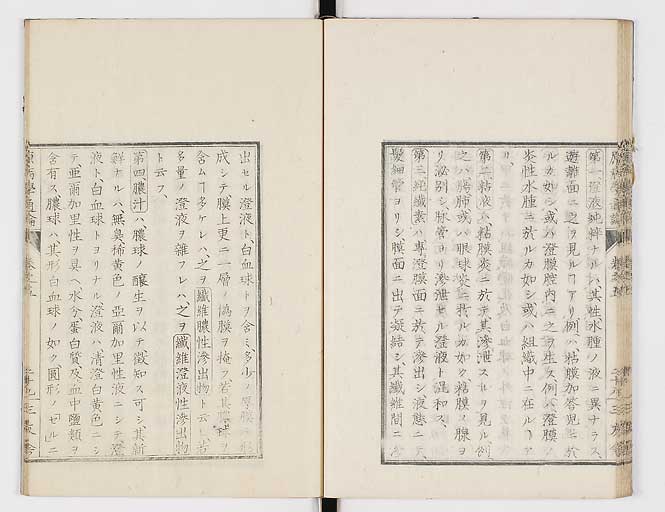 第一澄液純粹ナルハ其性水腫ノ液ニ異ナラス
遊離面ニ之ヲ見ルヿアリ例ハ粘膜加答兒ニ於
ルカ如シ或ハ澄膜腔内ニ之ヲ生ス例ハ澄膜ノ
炎性水腫ニ於ルカ如シ或ハ組織中ニ在ルヿア
リ
第二粘液ハ粘膜炎ニ於テ其滲泄スルヲ見ル例
之ハ肺或ハ眼球炎ニ於ルカ如ク粘膜ノ腺ヨ
リ泌別シ脉管ヨリ滲泄セル澄液ト混和ス
第三純纖素ハ專澄膜面ニ於テ滲出シ液態ニテ
髮細管ヨリシ膜面ニ出テ凝結シ其纖維間ニ
出セル澄液ト白血球トヲ含ミ多少ノ厚膜ヲ形
成シテ膜上更ニ一層ノ偽膜ヲ掩フ若其膿球ヲ
含ムヿ多ケレハ之ヲ纖維膿性滲出物ト云ヒ若
多量ノ澄液ヲ雜フレハ之ヲ纖維澄液性滲出物
ト云フ
第四膿汁ハ膿球ノ釀生ヲ以テ徴知ス可シ其新
鮮ナルハ無臭稀黄色ノ亜爾加里性液ニシテ澄
液ト白血球トヨリナル澄液ハ清澄白黄色ニシ
テ亜爾加里性ヲ具ヘ水分蛋白質及血中鹽類ヲ
含有ス膿球ハ其形白血球ノ如ク圓形ノ「ゼルニ
原病學通論
卷之五
三友舎